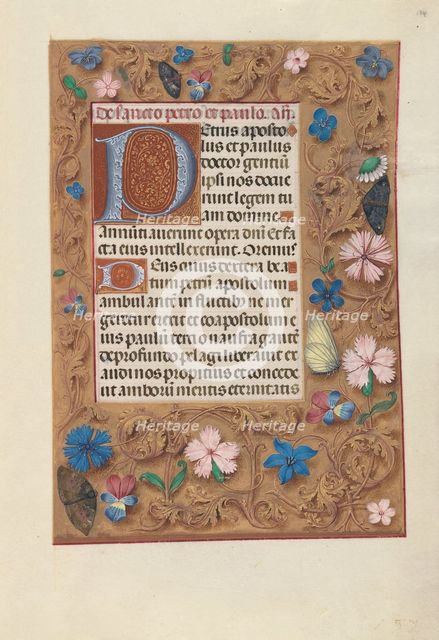 De sancto petro et paulo. añ.
Petrus aposto
lus et paulus
doctor gentiū
ipsi nos docue
runt legem tu
am domine.
Annūt auerunt opera dni Et fa
cta eius intellexerunt. Oremus
Deus cuius dextera bea
tum petrū apostolum
ambulantē in fluctibus ne mer
geretur erexit et coapostolum e
ius paulū tercio naufragantē
de profundo pelagi liberauit ex
audi nos propitius et concede
ut amborū meritis eternitatis
Heritage
Heritage
Heritage
Heritage
Heritage
Heritage